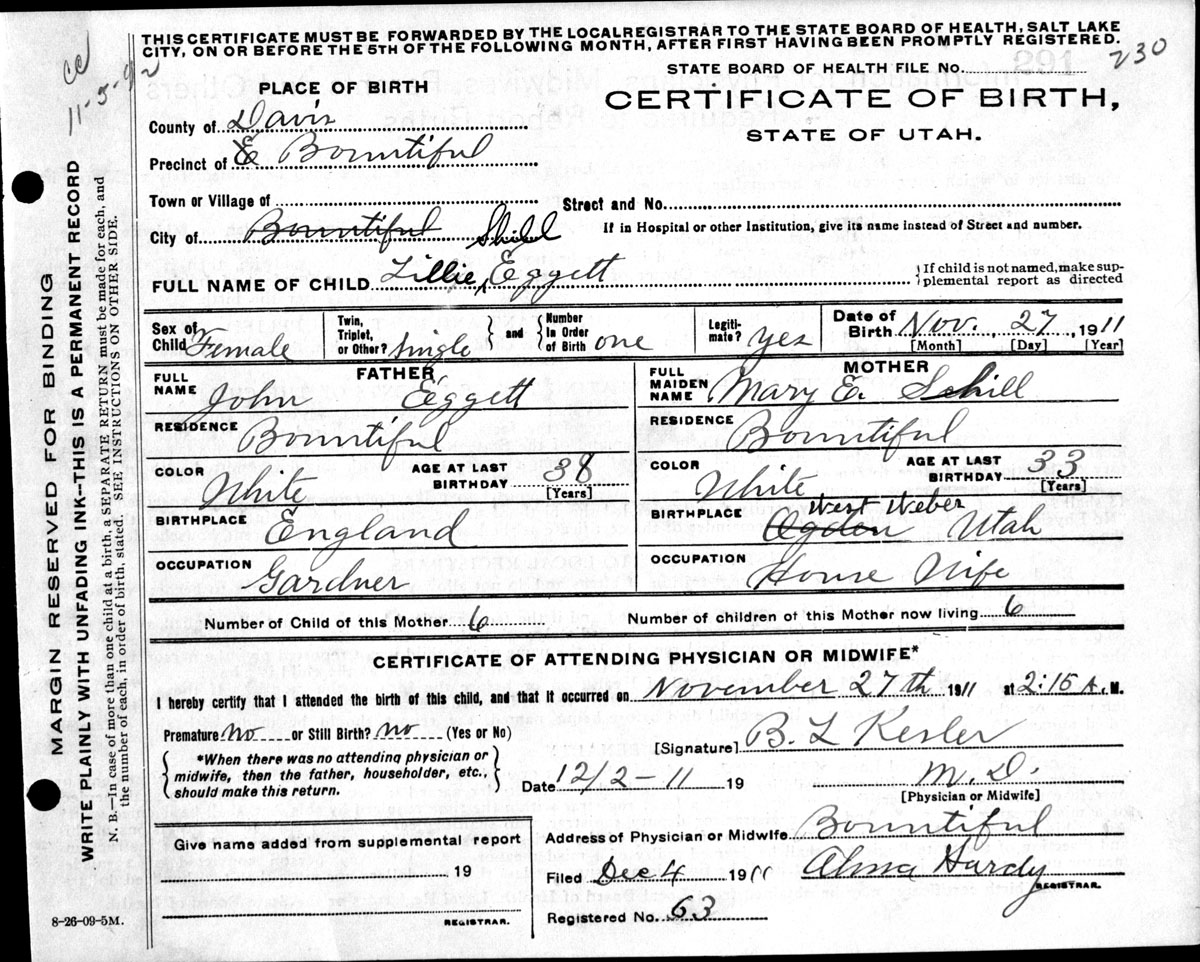 THIS CERTIFICATE MUST BE FORWARDED BY THE LOCALREGISTRAR TO THE STATE BOARD OF HEALTH, SALT LAKE
CITY, ON OR BEFORE THE 5TH OF THE FOLLOWING MONTH, AFTER FIRST HAVING BEEN PROMPTLY REGISTERED.
cc
11-5-92
STATE BOARD OF HEALTH FILE No. 230
PLACE OF BIRTH
CERTIFICATE OF BIRTH,
STATE OF UTAH.
County of Davis
Precinct of E Bountiful
Town or Village of
Street and No.
City of Bountiful
If in Hospital or other Institution, give its name instead of Street and number.
FULL NAME OF CHILD Lillie Shill Eggett
If child is not named, make sup-
plemental report as directed
Sex of Child Female
Twin, Triplet, or Other? single and Number In Order of Birth one
Legiti-mate? yes
Date of Birth Nov. 27, 1911
[Month] [Day] [Year]
FATHER
FULL NAME John Eggett
RESIDENCE Bountiful
COLOR White AGE AT LAST BIRTHDAY 38 [Years]
BIRTHPLACE England
OCCUPATION Gardner
MOTHER
FULL MAIDEN NAME Mary E. Schill
RESIDENCE Bountiful
COLOR White AGE AT LAST BIRTHDAY 33 [Years]
BIRTHPLACE Ogden West Weber Utah
OCCUPATION House Wife
Number of Child of this Mother 6 Number of children of this Mother now living 6
CERTIFICATE OF ATTENDING PHYSICIAN OR MIDWIFE*
I hereby certify that I attended the birth of this child, and that it occurred on November 27th 1911 at 2:15 A.M.
Premature No or Still Birth? no (Yes or No)
[Signature] B. L Kesler
*When there was no attending physician or
midwife, then the father, householder, etc.,
should make this return.
Date 12/2-11 19
M. D.
[Physician or Midwife]
Give name added from supplemental report
19
REGISTRAR.
Address of Physician or Midwife Bountiful
Filed Dec 4 1911 Alma Hardy
REGISTRAR.
Registered No. 63
8-26-09-5M.
MARGIN RESERVED FOR BINDING
WRITE PLAINLY WITH UNFADING INK--THIS IS A PERMANENT RECORD
N. B.—In case of more than one child at a birth, a SEPARATE RETURN must be made for each, and
the number of each, in order of birth, stated. SEE INSTRUCTIONS ON OTHER SIDE.